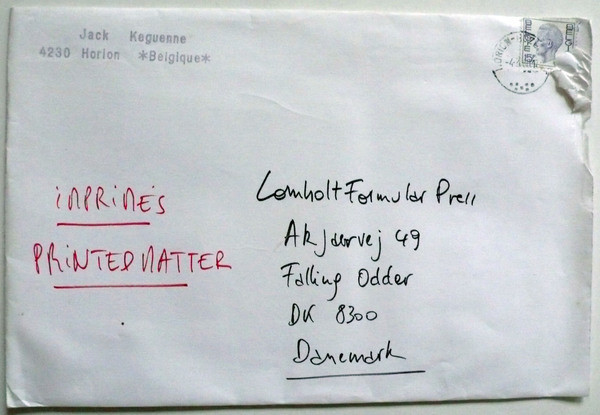 Jack Keguenne
4230 Horion *Belgique*
IMPRIMÉS
PRINTED MATTER
Lomholt Formular Press
Akjaervej 49
Falling Odder
DK 8300
Danemark